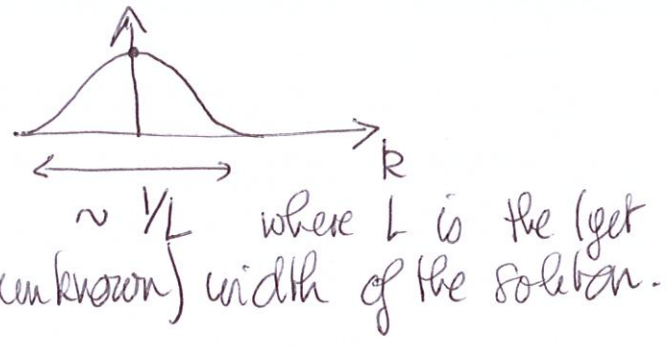 k
~ 1/L where L is the (yet
unknown) width of the soliton.